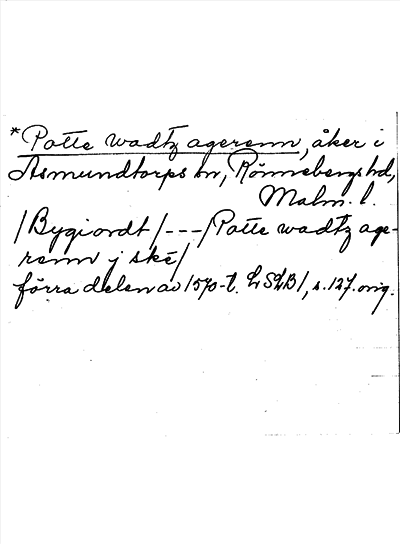 *Potte wadtz agerenn, åker i
Asmundtorps sn, Rönnebergs hd,
Malm. l.
/Bygiordt/---/Potte wadtz age-
renn j ské/
förra delen av 1570-t. LSLB 1, s. 127. orig.